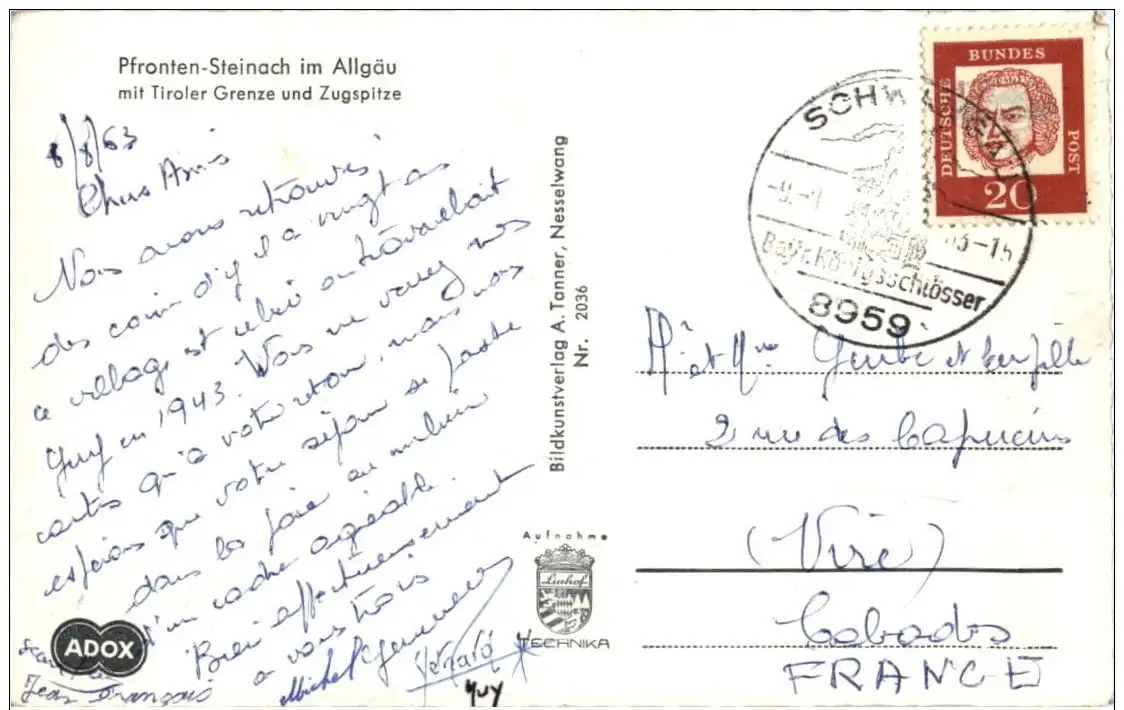 Pfronten-Steinach im Allgäu
mit Tiroler Grenze und Zugspitze
8/8/63
Chers Amis
Nous avons retrouvés
des coins d'il y a vingt ans
ce village est celui où travaillait
Guy en 1943. Vous ne verrez nos
cartes qu'à votre retour, mais nous
espérons que votre séjour se passe
dans la joie au milieu
d'un cadre agréable.
Bien affectueusement
à vous trois
Michel Genevieve
Jean François
Guy
ADOX
Bildkunstverlag A. Tanner, Nesselwang
Nr. 2036
Aufnahme
Linhof
TECHNIKA
DEUTSCHE
BUNDES
POST
20
SCHWANGAU
63-15
Bayr. Königsschlösser
8959
Mr et Mme et leur fille
2 rue des Capucins
(Vire)
Calvados
FRANCE